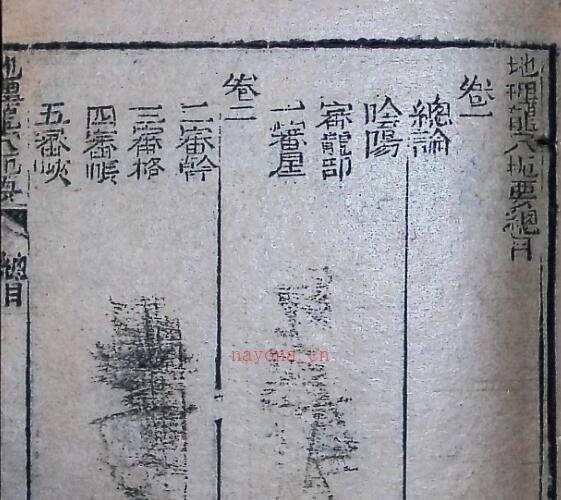 地理龍穴扼要總目
卷一
總論
陰陽
審龍部
一審星
卷二
二審幹
三審格
四審
五審峽
地理龍穴扼要 總目
nayona.cn